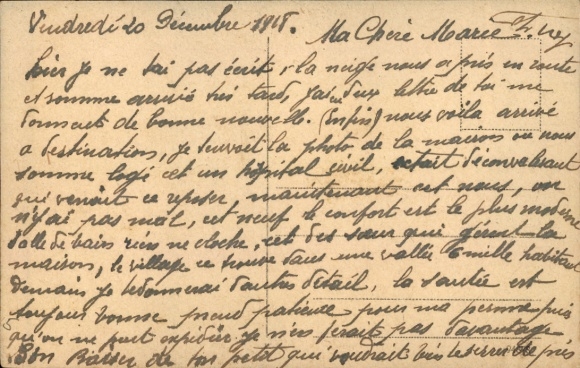 Vendredi 20 Décembre 1918.
Ma Chère Marie
hier je ne tai pas écrit, la neige nous a pris en route
et somme arrivé très tard, j'ai eu deux lettre de toi me
donnant de bonne nouvelle. (Enfin) nous voila arrivé
a destination, je tenvoit la photo de la maison ou nous
somme logé cet un hôpital civil, cetait déconvalessant
qui venait ce reposer, maintenant cet nous, on
n'y ai pas mal, cet neuf le confort est le plus moderne
salle de bain rien ne cloche, cet des sœur qui gerent la
maison, le village ce trouve dans une vallée 6 mille habitant
Demain je te donnerai d'autre détail, la santée est
toujour bonne prend patience pour ma perme puis
qu'on ne peut expédier je n'en ferait pas davantage
Bon Baiser de ton petit qui voudrait bien te serrer de près